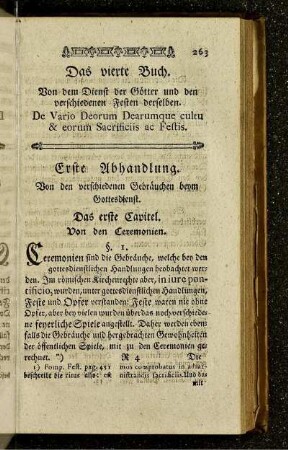 263
Das vierte Buch.
Von dem Dienst der Götter und den
verschiedenen Festen derselben.
De Vario Deorum Dearumque cultu
& eorum Sacrificiis ac Festis.
Erste Abhandlung.
Von den verschiedenen Gebräuchen beym
Gottesdienst.
Das erste Capitel.
Von den Ceremonien.
§. 1.
Ceremonien sind die Gebräuche, welche bey den
gottesdienstlichen Handlungen beobachtet wer-
den. Im römischen Kirchenrechte aber, in iure pon-
tificio, wurden, unter gottesdienstlichen Handlungen,
Feste und Opfer verstanden: Feste waren nie ohne
Opfer, aber bey vielen wurden über das noch verschiede-
ne feyerliche Spiele angestellt. Daher werden eben-
falls die Gebräuche und hergebrachten Gewohnheiten
der öffentlichen Spiele, mit zu den Ceremonien ge-
rechnet. 1)
R 4 Die
1) Pomp. Fest. pag. 453
beschreibt die ritus also: est
mos comprobatus in admi-
nistrandis sacrificiis. Und da-
mit